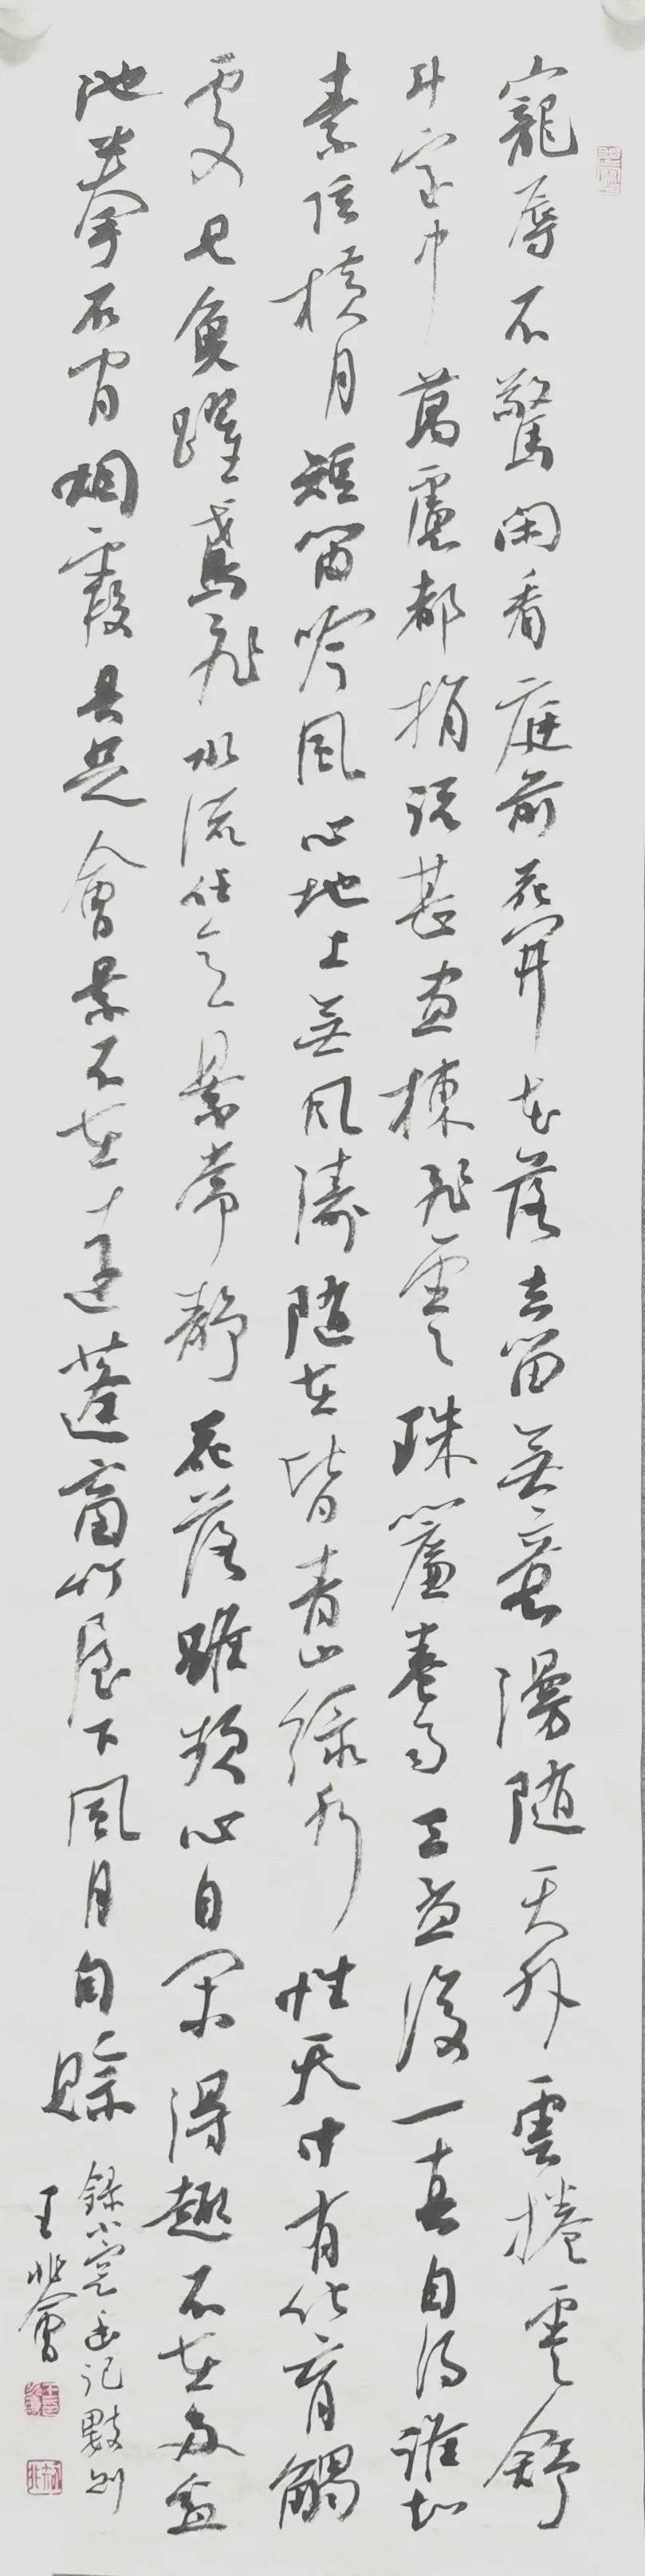 寵辱不驚閑看庭前花開花落去留無意漫随天外雲捲雲舒
斗室中萬慮都捐說甚画棟飛雲珠簾卷雨三盃後一真自得誰知
素弦横月短笛吟風心地上無風濤随在皆青山綠水性天中有化育觸
處見魚躍鳶飛水流任急景常靜花落雖頻心自閑得趣不在多盆
池拳石間烟霞具足會景不在遠蓬窗竹屋下風月自賒
録小窗幽記數則
王